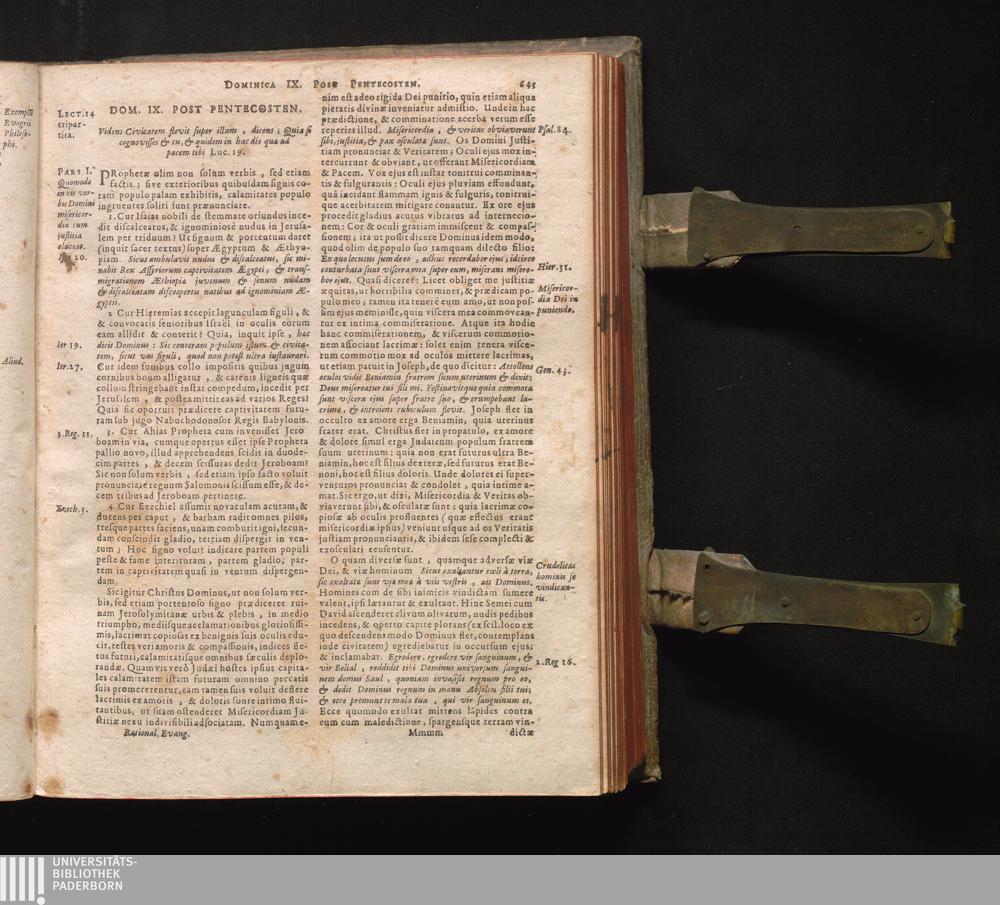 Exempla
Evagrii
Philoso-
phi.
Aliud.
DOMINICA IX. POST PENTECOSTEN. 645
LECT. 14
tripar-
tita.
DOM. IX. POST PENTECOSTEN.
Videns Civitatem flevit super illam, dicens; Quia si
cognovisses & tu, & quidem in hac die quæ ad
pacem tibi Luc. 19.
PARS I.
Quomodo
in his ver-
bis Domini
misericor-
dia cum
justitia
eluceat.
20.
PRophetæ olim non solum verbis, sed etiam
factis; sive exterioribus quibusdam signis co-
ram populo palam exhibitis, calamitates populo
ingruentes soliti sunt prænunciare.
1. Cur Isaias nobili de stemmate oriundus ince-
dit discalceatus, & ignominiosè nudus in Jerusa-
lem per triduum? Ut signum & portentum daret
(inquit sacer textus) super Ægyptum & Æthyo-
piam. Sicut ambulavit nudus & discalceatus, sic mi-
nabit Rex Assyriorum captivitatem Ægypti, & trans-
migrationem Æthiopiæ juvenum & senum nudam
& discalceatam discoopertis natibus ad ignominiam Æ-
gypti.
2 Cur Hieremias accepit lagunculam figuli, &
& convocatis senioribus Israël in oculis eorum
eam allidit & conterit? Quia, inquit ipse, hæc
Ier 19.
dicit Dominus: Sic conteram populum istum & civita-
tem, sicut vas figuli, quod non potest ultra instaurari.
Ier. 27.
Cur idem funibus collo impositis quibus jugum
cornibus boum alligatur, & catenis ligneis quæ
collum stringebant instar compedum, incedit per
Jerusalem, & postea mittit eas ad varios Reges?
Quia sic oportuit prædicere captivitatem futu-
ram sub jugo Nabuchodonosor Regis Babylonis.
3. Reg. 11.
3. Cur Ahias Propheta cum invenisset Jero
boam in via, cumque opertus esset ipse Propheta
pallio novo, illud apprehendens scidit in duode-
cim partes, & decem scissuras dedit Jeroboam?
Sic non solum verbis, sed etiam ipso facto voluit
pronunciare regnum Salomonis scissum esse, & de-
cem tribus ad Jeroboam pertinere.
Ezech. 5.
4. Cur Ezechiel assumit novaculam acutam, &
ducens per caput, & barbam radit omnes pilos,
tresque partes faciens, unam comburit igni, secun-
dam conscindit gladio, tertiam dispergit in ven-
tum; Hoc signo voluit indicare partem populi
peste & fame interituram, partem gladio, par-
tem in captivitatem quasi in ventum dispergen-
dam.
Sic igitur Christus Dominus, ut non solum ver-
bis, sed etiam portentoso signo prædiceret rui-
nam Jerosolymitanæ urbis & plebis, in medio
triumpho, mediisque acclamationibus gloriosissi-
mis, lacrimas copiosas ex benignis suis oculis edu-
cit, testes veri amoris & compassionis, indices fle-
tus futuri, calamitatisque omnibus sæculis deplo-
randæ. Quamvis verò Judæi hostes ipsius capita-
les calamitatem istam futuram omnino peccatis
suis promererentur, eam tamen suis voluit deflere
lacrimis ex amoris, & doloris fonte intimo flui-
tantibus, ut suam ostenderet Misericordiam Ju-
stitiæ nexu indivisibili adsociatam. Numquam e-
Rational. Evang.
nim est adeo rigida Dei punitio, quin etiam aliqua
pietatis divinæ inveniatur admistio. Unde in hac
prædictione, & comminatione acerba verum esse
reperies illud. Misericordia, & veritas obviaverunt
Psal. 84.
sibi, justitia, & pax osculatæ sunt. Os Domini Justi-
tiam pronunciat & Veritatem; Oculi ejus mox in-
tercurrunt & obviant, ut offerant Misericordiam
& Pacem. Vox ejus est instar tonitrui comminan-
tis & fulgurantis: Oculi ejus pluviam effundunt,
quâ incidant flammam ignis & fulguris, tonitrui-
que acerbitatem mitigare conantur. Ex ore ejus
procedit gladius acutus vibratus ad internecio-
nem: Cor & oculi gratiam immiscent & compas-
sionem; ita ut possit dicere Dominus idem modo,
quod olim de populo suo tamquam dilecto filio:
Ex quo locutus sum de eo, adhuc recordabor ejus; idcirco
Hier. 31.
conturbata sunt viscera mea super eum, miserans misere-
bor ejus. Quasi diceret: Licet obliget me justitiæ
æquitas, ut horribilia comminer, & prædicam po-
Misericor-
dia Dei in
puniendo.
pulo meo; tamen ita tenerè eum amo, ut non pos-
sim ejus meminisse, quin viscera mea commovean-
tur ex intima commiseratione. Atque ita hodie
hanc commiserationem, & viscerum commotio-
nem associant lacrimæ: solet enim tenera visce-
rum commotio mox ad oculos mittere lacrimas,
ut etiam patuit in Joseph, de quo dicitur: Attollens
Gen. 43.
oculos vidit Beniamin fratrem suum uterinum & dixit:
Deus misereatur tui fili mi. Festinavitque quia commota
sunt viscera ejus super fratre suo, & erumpebant la-
crimæ, & introiens cubiculum flevit. Joseph flet in
occulto ex amore erga Beniamin, quia uterinus
frater erat. Christus flet in propatulo, ex amore
& dolore simul erga Judaicum populum fratrem
suum uterinum: quia non erat futurus ultra Be-
niamin, hoc est filius dexteræ, sed futurus erat Be-
noni, hoc est filius doloris. Unde dolores ei super-
venturos pronunciat & condolet, quia intime a-
mat. Sic ergo, ut dixi, Misericordia & Veritas ob-
viaverunt sibi, & osculatæ sunt: quia lacrimæ co-
piosæ ab oculis profluentes (quæ effectus erant
misericordiæ ipsius) veniunt usque ad os Veritatis
justitiam pronunciantis, & ibidem sese complecti &
exosculari censentur.
O quam diversæ sunt, quamque adversæ viæ
Crudelitas
hominis se
vindican-
tis.
Dei, & viæ hominum Sicut exaltantur cœli à terra,
sic exaltatæ sunt viæ meæ à viis vestris, ait Dominus.
Homines cum de sibi inimicis vindictam sumere
valent, ipsi lætantur & exultant. Hinc Semei cum
David ascenderet clivum olivarum, nudis pedibus
incedens, & operto capite plorans (ex scil. loco ex
quo descendens modo Dominus flet, contemplans
inde civitatem) egrediebatur in occursum ejus;
& inclamabat. Egredere, egredere vir sanguinum, &
2. Reg 16.
vir Belial, reddidit tibi Dominus universum sangui-
nem domus Saul, quoniam invasisti regnum pro eo,
& dedit Dominus regnum in manu Absalon filii tui;
& ecce premunt te mala tua, qui vir sanguinum es.
Ecce quomodo exultat mittens lapides contra
eum cum maledictione, spargensque terram vin-
Mmmm
dictæ
UNIVERSITÄTS-
BIBLIOTHEK
PADERBORN